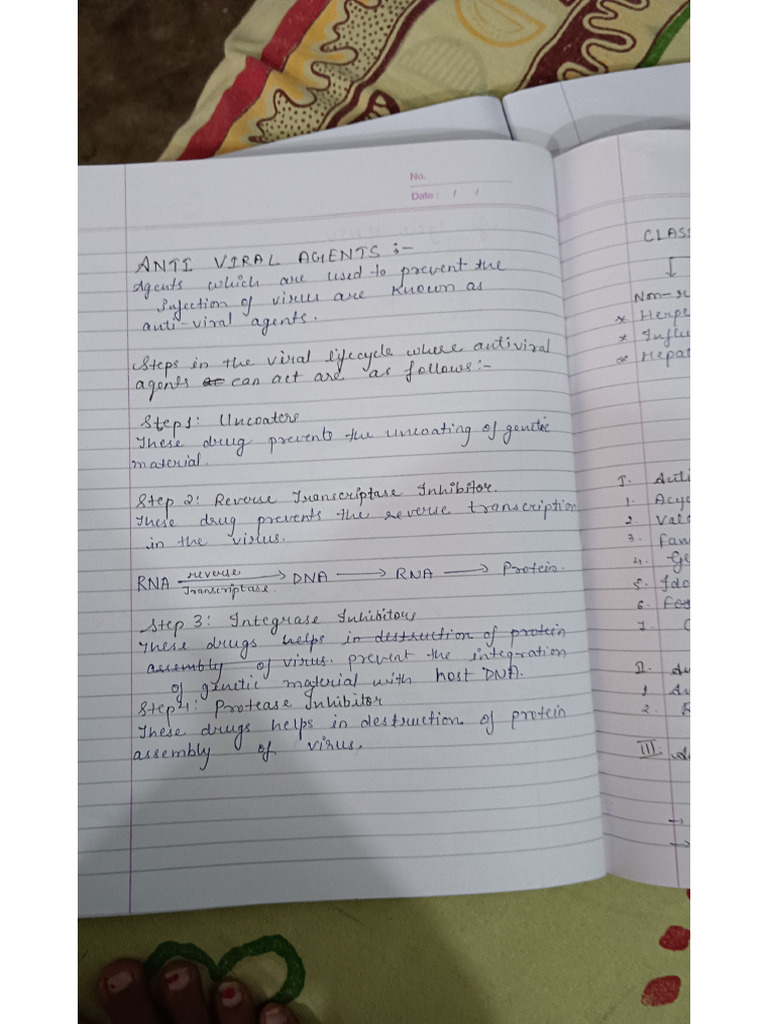 No.
Date : / /
ANTI VIRAL AGENTS :-
Agents which are used to prevent the
infection of virus are known as
anti-viral agents.
Steps in the viral lifecycle where antiviral
agents can act are as follows:-
Step1: Uncoaters
These drug prevents the uncoating of genetic
material.
Step 2: Reverse Transcriptase Inhibitor.
These drug prevents the reverse transcription
in the virus.
RNA reverse Transcriptase. → DNA → RNA → Protein.
Step 3: Integrase Inhibitors
These drugs helps in destruction of protein
assembly of virus. prevent the integration
of genetic material with host DNA.
Step 4: Protease Inhibitor
These drugs helps in destruction of protein
assembly of virus.
CLASS
↓
Non-
× Herpe
× Influ
× Hepat
I. Anti
1. Acyc
2. Vala
3. Fam
4. Ge
5. Ido
6.
7. C
II. A
1
2.
III.
→
→